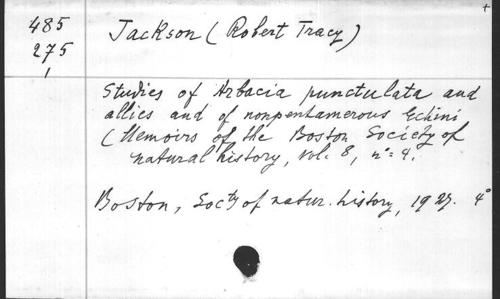 485
275
1
Jackson (Robert Tracy)
Studies of Arbacia punctulata and
allies and of nonpentamerous Echini
(Memoirs of the Boston Society of
natural history, vol. 8, n° 4.
Boston, Socty of natur. history, 1927. 4°